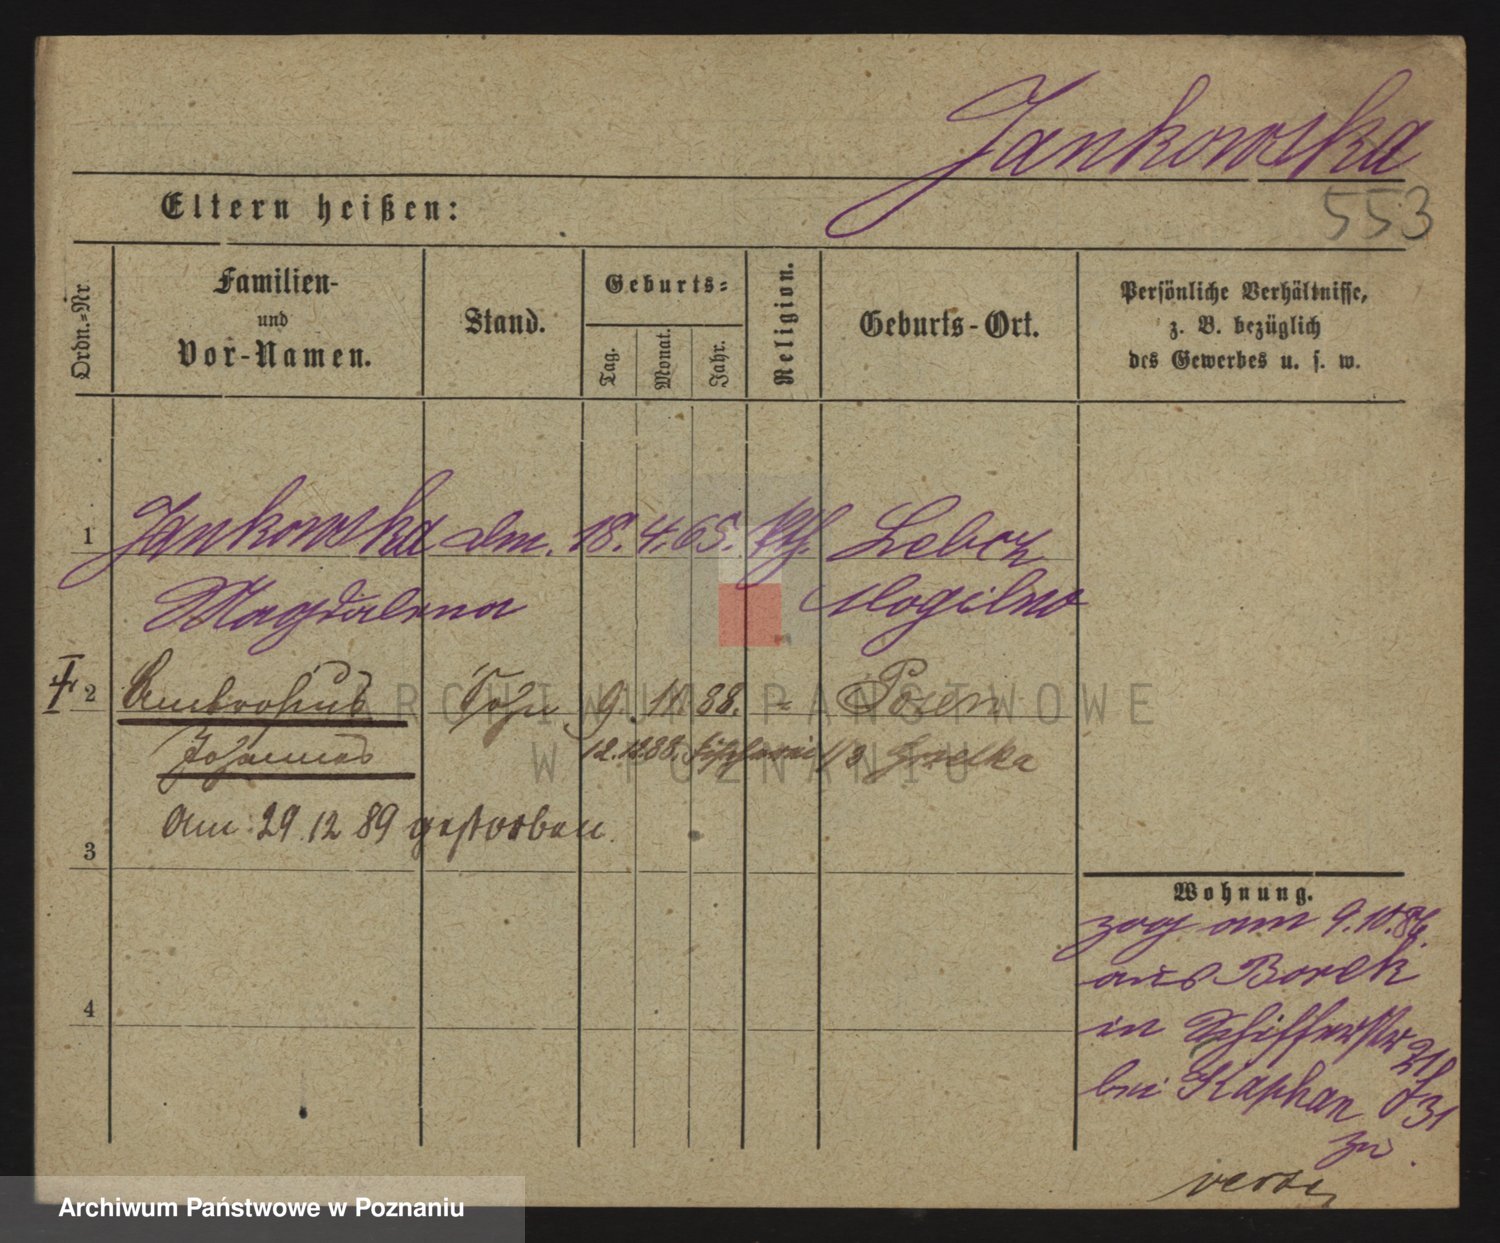 Jankowska
553
Eltern heißen:
Ordn.-Nr
Familien-
und
Vor-Namen.
Stand.
Geburts-
Tag.
Monat.
Jahr.
Religion.
Geburts-Ort.
Persönliche Verhältnisse,
z. B. bezüglich
des Gewerbes u. s. w.
1 Jankowska 18. 4. 65. kth.
Magdalena Mogilno
2 Ambrosius Sohn 9. 88. " Posen
Johannes 12.12.88. Fischerei 1/3
Am 29.12 89 gestorben.
3
4
Wohnung.
zog am 9.10.86.
aus Borek
in Schifferstr 21
bei Kaphan
zu.
ARCHIWUM PAŃSTWOWE
W POZNANIU
Archiwum Państwowe w Poznaniu